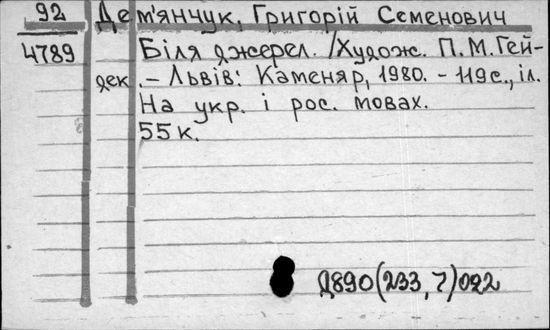 92 Дем'янчук, Григорій Семенович
4789 Біля джерел. /Худож. П.М.Гей-
дек. – Львів: Каменяр, 1980. – 119с., іл.
На укр. і рос. мовах.
55к.
Д890(233,7)022